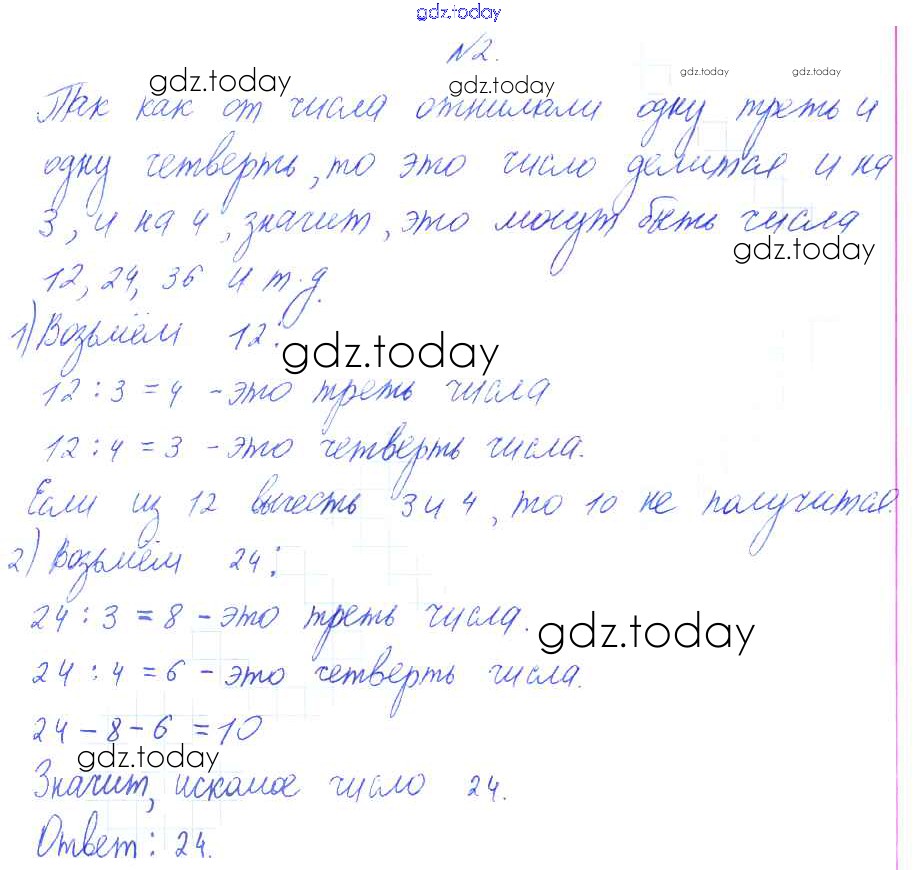 gdz.today
№2.
gdz.today gdz.today gdz.today gdz.today
Так как от числа отнимали одну треть и
одну четверть, то это число делится и на
3, и на 4, значит, это могут быть числа
gdz.today
12, 24, 36 и т.д.
1) Возьмём 12:
gdz.today
12 : 3 = 4 - это треть числа
12 : 4 = 3 - это четверть числа.
Если из 12 вычесть 3 и 4, то 10 не получится.
2) Возьмём 24:
24 : 3 = 8 - это треть числа.
gdz.today
24 : 4 = 6 - это четверть числа.
24 - 8 - 6 = 10
gdz.today
Значит, искомое число 24.
Ответ: 24.